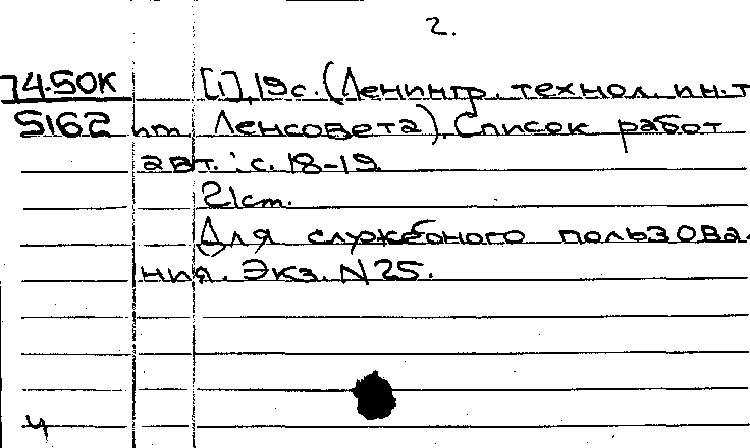 2.
74-50К [1], 19с. (Ленингр. технол. ин-т
5162 им. Ленсовета). Список работ
авт.: с. 18-19
21 см.
Для служебного пользова-
ния. Экз. N 25.
ч